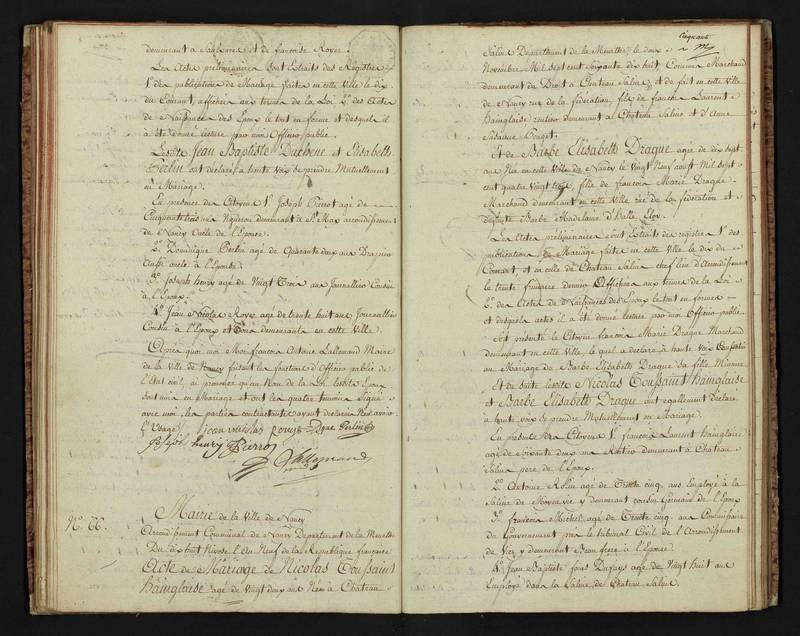 demeurant a Saulxures et de francoise Royer.
Les Actes préliminaires sont Extraits des Registres
1º. des publications de Mariage faites en cette Ville le dix
du Courant, affichées aux termes de la Loi 2º. des Actes
de Naissances des Epoux le tout en forme et desquels il
a été donné lecture par moi Officier public.
Lesdits Jean Baptiste Duchene et Elisabeth
Gerlin ont déclaré a haute voix se prendre Mutuellement
en Mariage.
En presence des Citoyens 1º. Joseph Pierrot agé de
Cinquante trois ans Vigneron demeurant à St. Max arrondissement
de Nancy Oncle de l'Epouse.
2º. Dominique Gerlin agé de Quarante deux ans
aussi oncle à l'Epouse.
3º. Joseph henry agé de Vingt Trois ans Journallier Cousin
de l'Epoux.
4º. Jean Nicolas Royer agé de trente huit ans Journallier
Cousin à l'Epoux et tous demeurants en cette Ville.
Après quoi moi francois Antoine Lallemand Maire
de la Ville de Nancy faisant les fonctions d'Officier public de
l'Etat civil, ai prononcé qu'au Nom de la Loi lesdits Epoux
sont unis en Mariage et ont les quatre temoins Signé
avec moi, les parties contractantes ayant déclaré n'en avoir
l'Usage.
joseph henry Pierrot
Lallemand
Nº. 66.
Mairie de la Ville de Nancy
Arrondissement Communal de Nancy Departement de la Meurthe
Du dix huit Nivose l'An Neuf de la Republique française
Acte de Mariage de Nicolas Toussaint
Hainglaise agé de Vingt Deux ans Né à Chateau
Cinquante
Salins Departement de la Meurthe, le deux
Novembre Mil Sept cent Soixante dix huit Commis Marchand
demeurant de Droit à Chateau Salins, et de fait en cette Ville
de Nancy rue de la fédération, fils de francois Laurent
Hainglaise rentier demeurant à Château Salins et d'Anne
Susanne
Et de Barbe Elisabeth Drague agée de dix sept
ans Née en cette Ville de Nancy le Vingt Neuf Aoust Mil Sept
cent quatre Vingt trois, fille de francois Marie Drague
Marchand demeurant en cette Ville rue de la fédération et
defunte Barbe Madelaine
Les Actes préliminaires sont Extraits des registres 1º. des
publications de Mariage faites en cette Ville le dix du
Courant, et en celle de Chateau Salins chef lieu d'Arrondissement
le trente frimaire dernier Affichées aux termes de la Loi
2º. des Actes de Naissances des Epoux le tout en formes
et desquels actes il a été donné lecture par moi Officier public.
Est présenté le Citoyen francois Marie Drague Marchand
demeurant en cette Ville, le quel a declaré à haute voix Consentir
au Mariage de Barbe Elisabeth Drague sa fille Mineure
Et de suite lesdits Nicolas Toussaint Hainglaise
et Barbe Elisabeth Drague ont egallement déclaré
à haute voix se prendre Mutuellement en Mariage.
En presence des Citoyens 1º. francois Laurent Hainglaise
agé de Soixante deux ans Rentier demeurant à Chateau
Salins pere de l'Epoux.
2º. Antoine Rolin agé de Trente cinq ans Employé à la
Saline de Moyenvic y demeurant cousin Germain de l'Epoux
3º. francois Michel agé de Trente cinq ans Commissaire
du Gouvernement près le tribunal Civil de l'Arrondissement
de Vic, y demeurant Beau frere à l'épouse.
4º. Jean Baptiste agé de Vingt huit ans
Employé dans la Saline de Chateau Salins.